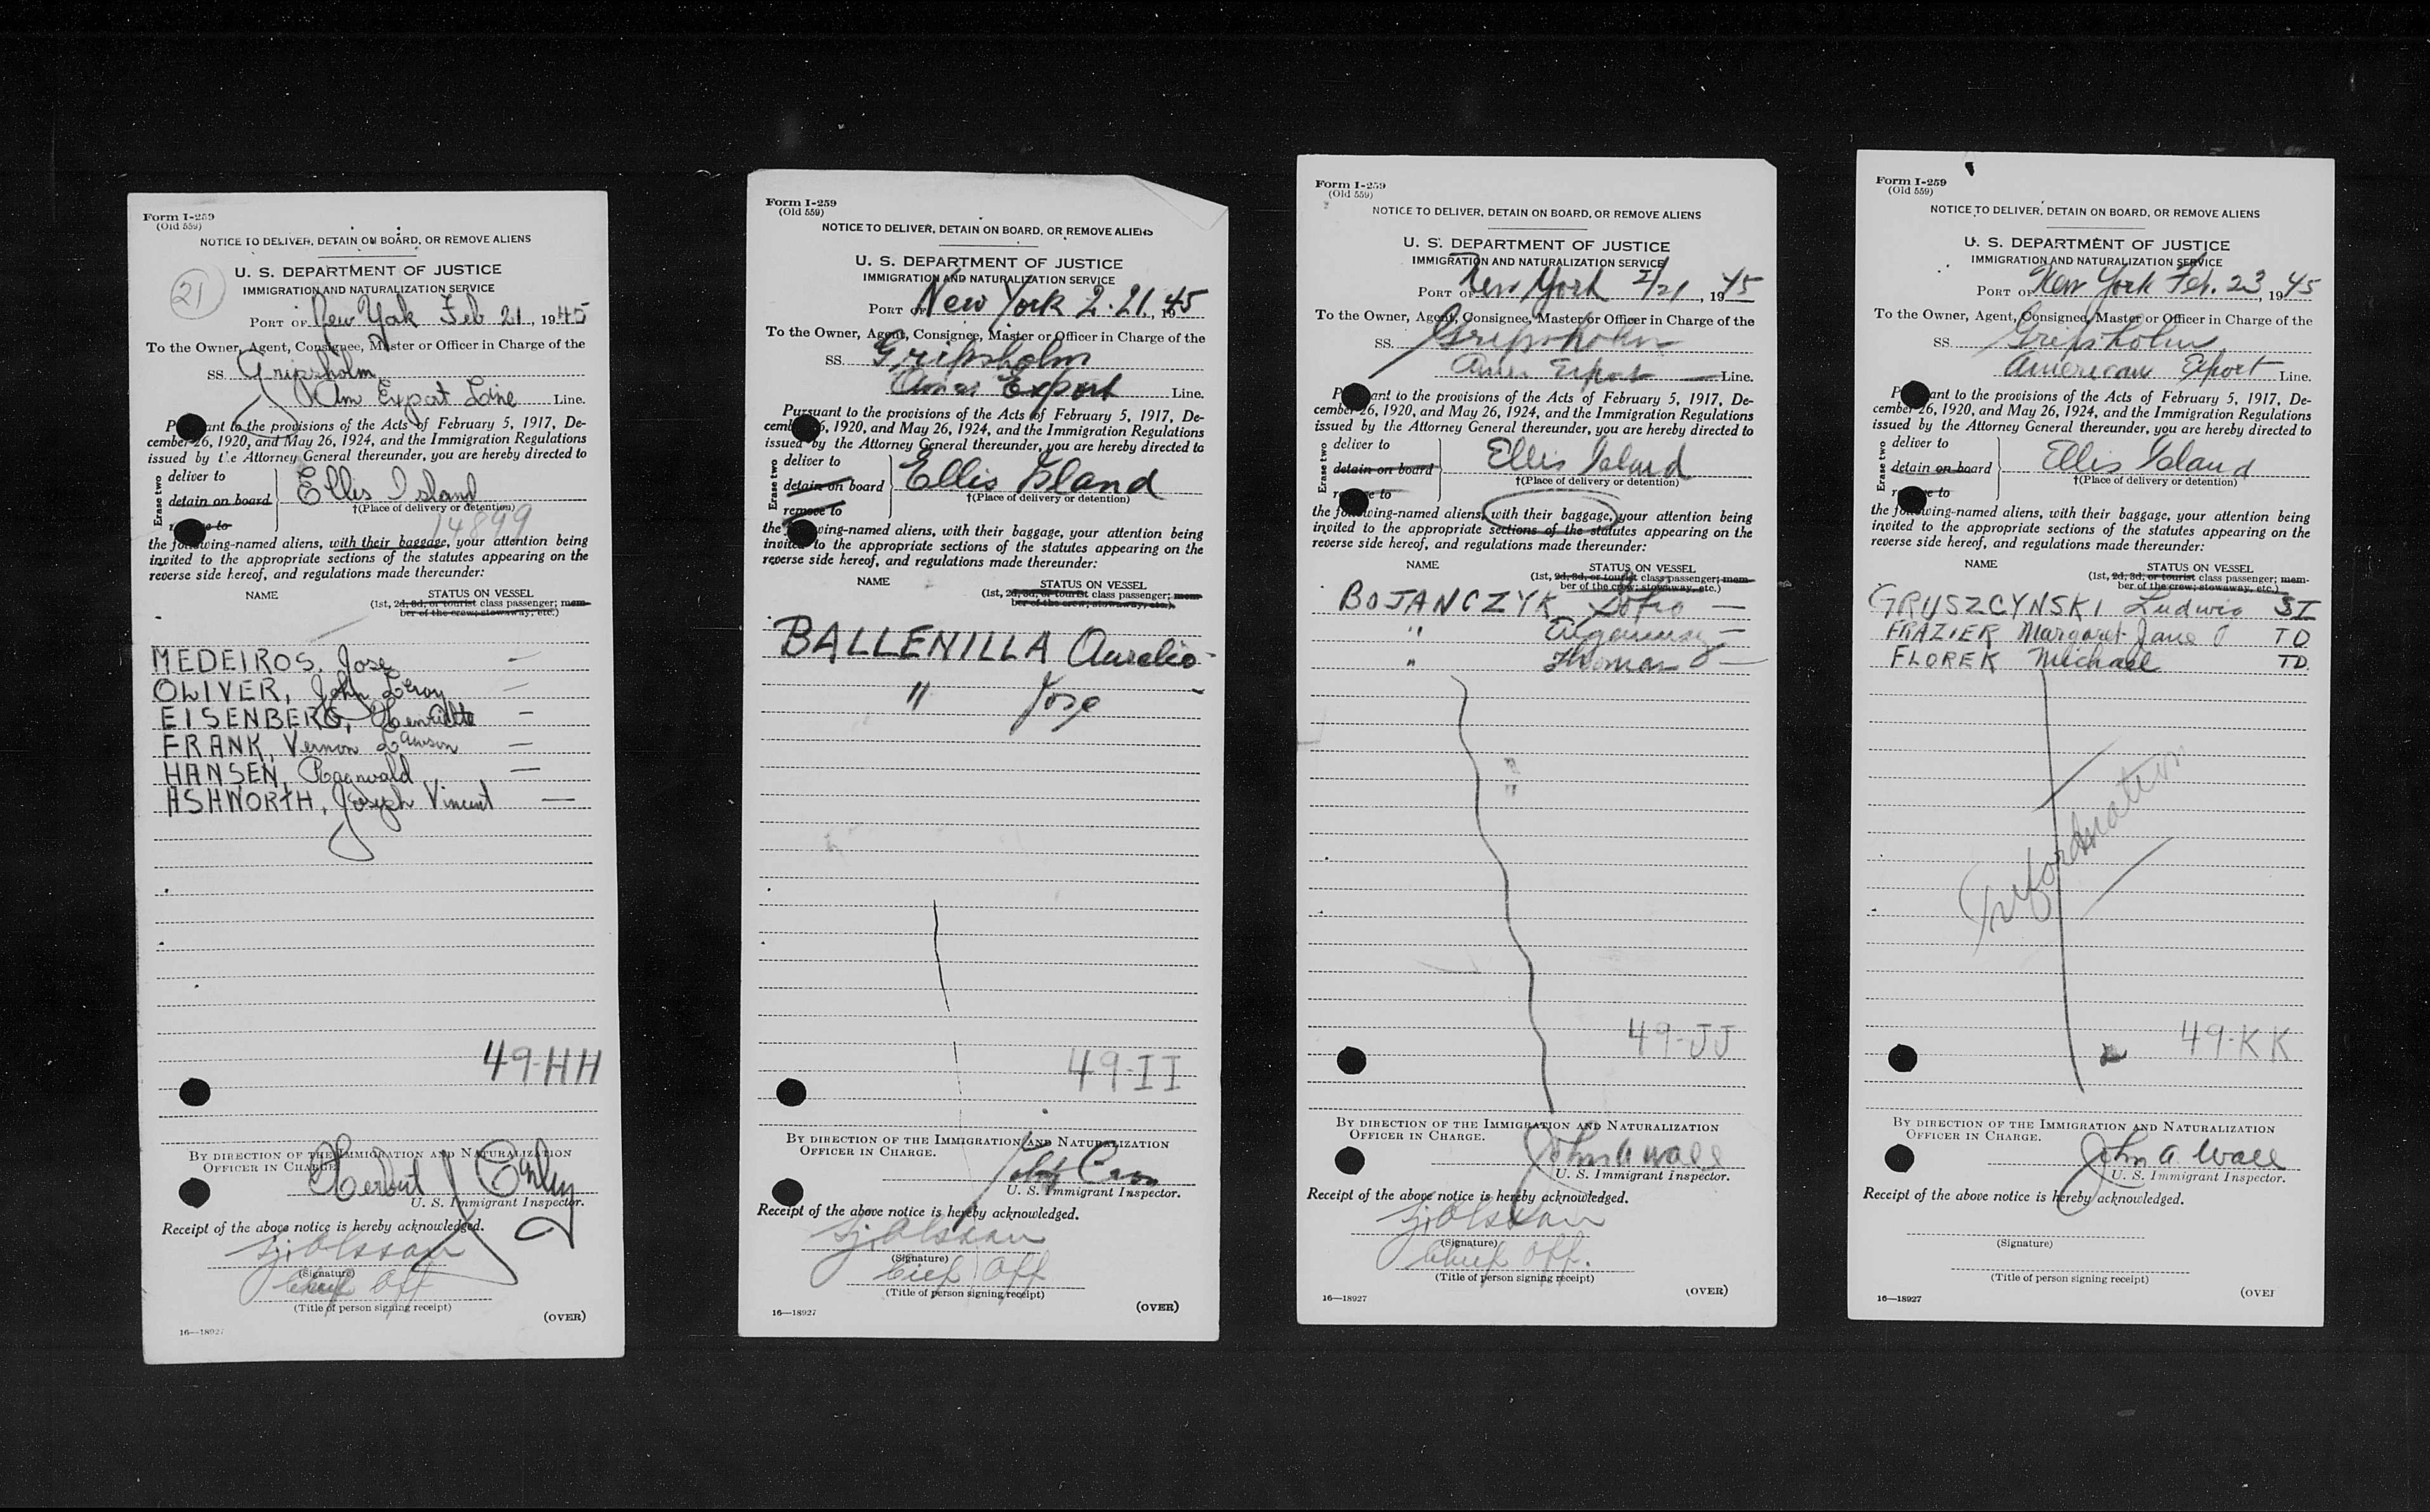 Form I-259
(Old 559)
NOTICE TO DELIVER, DETAIN ON BOARD, OR REMOVE ALIENS
U. S. DEPARTMENT OF JUSTICE
IMMIGRATION AND NATURALIZATION SERVICE
21
PORT OF New York Feb 21, 1945
To the Owner, Agent, Consignee, Master or Officer in Charge of the
SS. Gripsholm
Am Export Line Line.
Pursuant to the provisions of the Acts of February 5, 1917, De-
cember 26, 1920, and May 26, 1924, and the Immigration Regulations
issued by the Attorney General thereunder, you are hereby directed to
Erase two
deliver to
detain on board
remove to
Ellis Island
†(Place of delivery or detention)
14899
the following-named aliens, with their baggage, your attention being
invited to the appropriate sections of the statutes appearing on the
reverse side hereof, and regulations made thereunder:
NAME
STATUS ON VESSEL
(1st, 2d, 3d, or tourist class passenger; mem-
ber of the crew; stowaway, etc.)
MEDEIROS, Jose —
OLIVER, John Leroy —
EISENBERG, Henriette —
FRANK, Vernon Lawson —
HANSEN, Ragnvald —
ASHWORTH, Joseph Vincent —
49-HH
BY DIRECTION OF THE IMMIGRATION AND NATURALIZATION
OFFICER IN CHARGE.
Herbert
U. S. Immigrant Inspector.
Receipt of the above notice is hereby acknowledged.
Sj. Olsson
(Signature)
Chief Off
(Title of person signing receipt)
(OVER)
16—18927
Form I-259
(Old 559)
NOTICE TO DELIVER, DETAIN ON BOARD, OR REMOVE ALIENS
U. S. DEPARTMENT OF JUSTICE
IMMIGRATION AND NATURALIZATION SERVICE
PORT OF New York 2-21, 1945
To the Owner, Agent, Consignee, Master or Officer in Charge of the
SS. Gripsholm
Amer Export Line.
Pursuant to the provisions of the Acts of February 5, 1917, De-
cember 26, 1920, and May 26, 1924, and the Immigration Regulations
issued by the Attorney General thereunder, you are hereby directed to
Erase two
deliver to
detain on board
remove to
Ellis Island
†(Place of delivery or detention)
the following-named aliens, with their baggage, your attention being
invited to the appropriate sections of the statutes appearing on the
reverse side hereof, and regulations made thereunder:
NAME
STATUS ON VESSEL
(1st, 2d, 3d, or tourist class passenger; mem-
ber of the crew; stowaway, etc.)
BALLENILLA Aurelio -
" Jose -
49-II
BY DIRECTION OF THE IMMIGRATION AND NATURALIZATION
OFFICER IN CHARGE.
U. S. Immigrant Inspector.
Receipt of the above notice is hereby acknowledged.
Sj. Olsson
(Signature)
Cief Off
(Title of person signing receipt)
16—18927
(OVER)
Form I-259
(Old 559)
NOTICE TO DELIVER, DETAIN ON BOARD, OR REMOVE ALIENS
U. S. DEPARTMENT OF JUSTICE
IMMIGRATION AND NATURALIZATION SERVICE
PORT OF New York 2/21, 1945
To the Owner, Agent, Consignee, Master or Officer in Charge of the
SS. Gripsholm
Amer Export — Line.
Pursuant to the provisions of the Acts of February 5, 1917, De-
cember 26, 1920, and May 26, 1924, and the Immigration Regulations
issued by the Attorney General thereunder, you are hereby directed to
Erase two
deliver to
detain on board
remove to
Ellis Island
†(Place of delivery or detention)
the following-named aliens, with their baggage, your attention being
invited to the appropriate sections of the statutes appearing on the
reverse side hereof, and regulations made thereunder:
NAME
STATUS ON VESSEL
(1st, 2d, 3d, or tourist class passenger; mem-
ber of the crew; stowaway, etc.)
BOJANCZYK —
" —
" Thomas —
49-JJ
BY DIRECTION OF THE IMMIGRATION AND NATURALIZATION
OFFICER IN CHARGE.
John A Wall
U. S. Immigrant Inspector.
Receipt of the above notice is hereby acknowledged.
Sj. Olsson
(Signature)
Chief Off.
(Title of person signing receipt)
16—18927
(OVER)
Form I-259
(Old 559)
NOTICE TO DELIVER, DETAIN ON BOARD, OR REMOVE ALIENS
U. S. DEPARTMENT OF JUSTICE
IMMIGRATION AND NATURALIZATION SERVICE
PORT OF New York Feb. 23, 1945
To the Owner, Agent, Consignee, Master or Officer in Charge of the
SS. Gripsholm
American Export Line.
Pursuant to the provisions of the Acts of February 5, 1917, De-
cember 26, 1920, and May 26, 1924, and the Immigration Regulations
issued by the Attorney General thereunder, you are hereby directed to
Erase two
deliver to
detain on board
remove to
Ellis Island
†(Place of delivery or detention)
the following-named aliens, with their baggage, your attention being
invited to the appropriate sections of the statutes appearing on the
reverse side hereof, and regulations made thereunder:
NAME
STATUS ON VESSEL
(1st, 2d, 3d, or tourist class passenger; mem-
ber of the crew; stowaway, etc.)
GRUSZCYNSKI Ludwig SI
FRAZIER Margaret Jane TD
FLOREK Michael TD
Information
49-KK
BY DIRECTION OF THE IMMIGRATION AND NATURALIZATION
OFFICER IN CHARGE.
John A Wall
U. S. Immigrant Inspector.
Receipt of the above notice is hereby acknowledged.
(Signature)
(Title of person signing receipt)
16—18927
(OVER